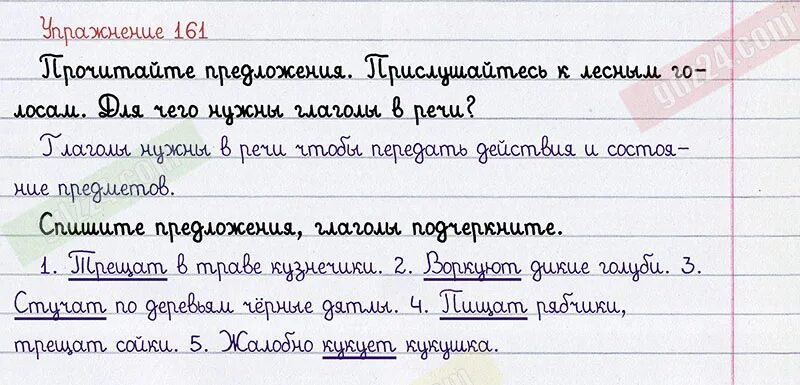 Упражнение 161
Прочитайте предложения. Прислушайтесь к лесным го-
лосам. Для чего нужны глаголы в речи?
Глаголы нужны в речи чтобы передать действия и состоя-
ние предметов.
Спишите предложения, глаголы подчеркните.
1. Трещат в траве кузнечики. 2. Воркуют дикие голуби. 3.
Стучат по деревьям чёрные дятлы. 4. Пищат рябчики,
трещат сойки. 5. Жалобно кукует кукушка.
gdz24.com
gdz24.com
.com